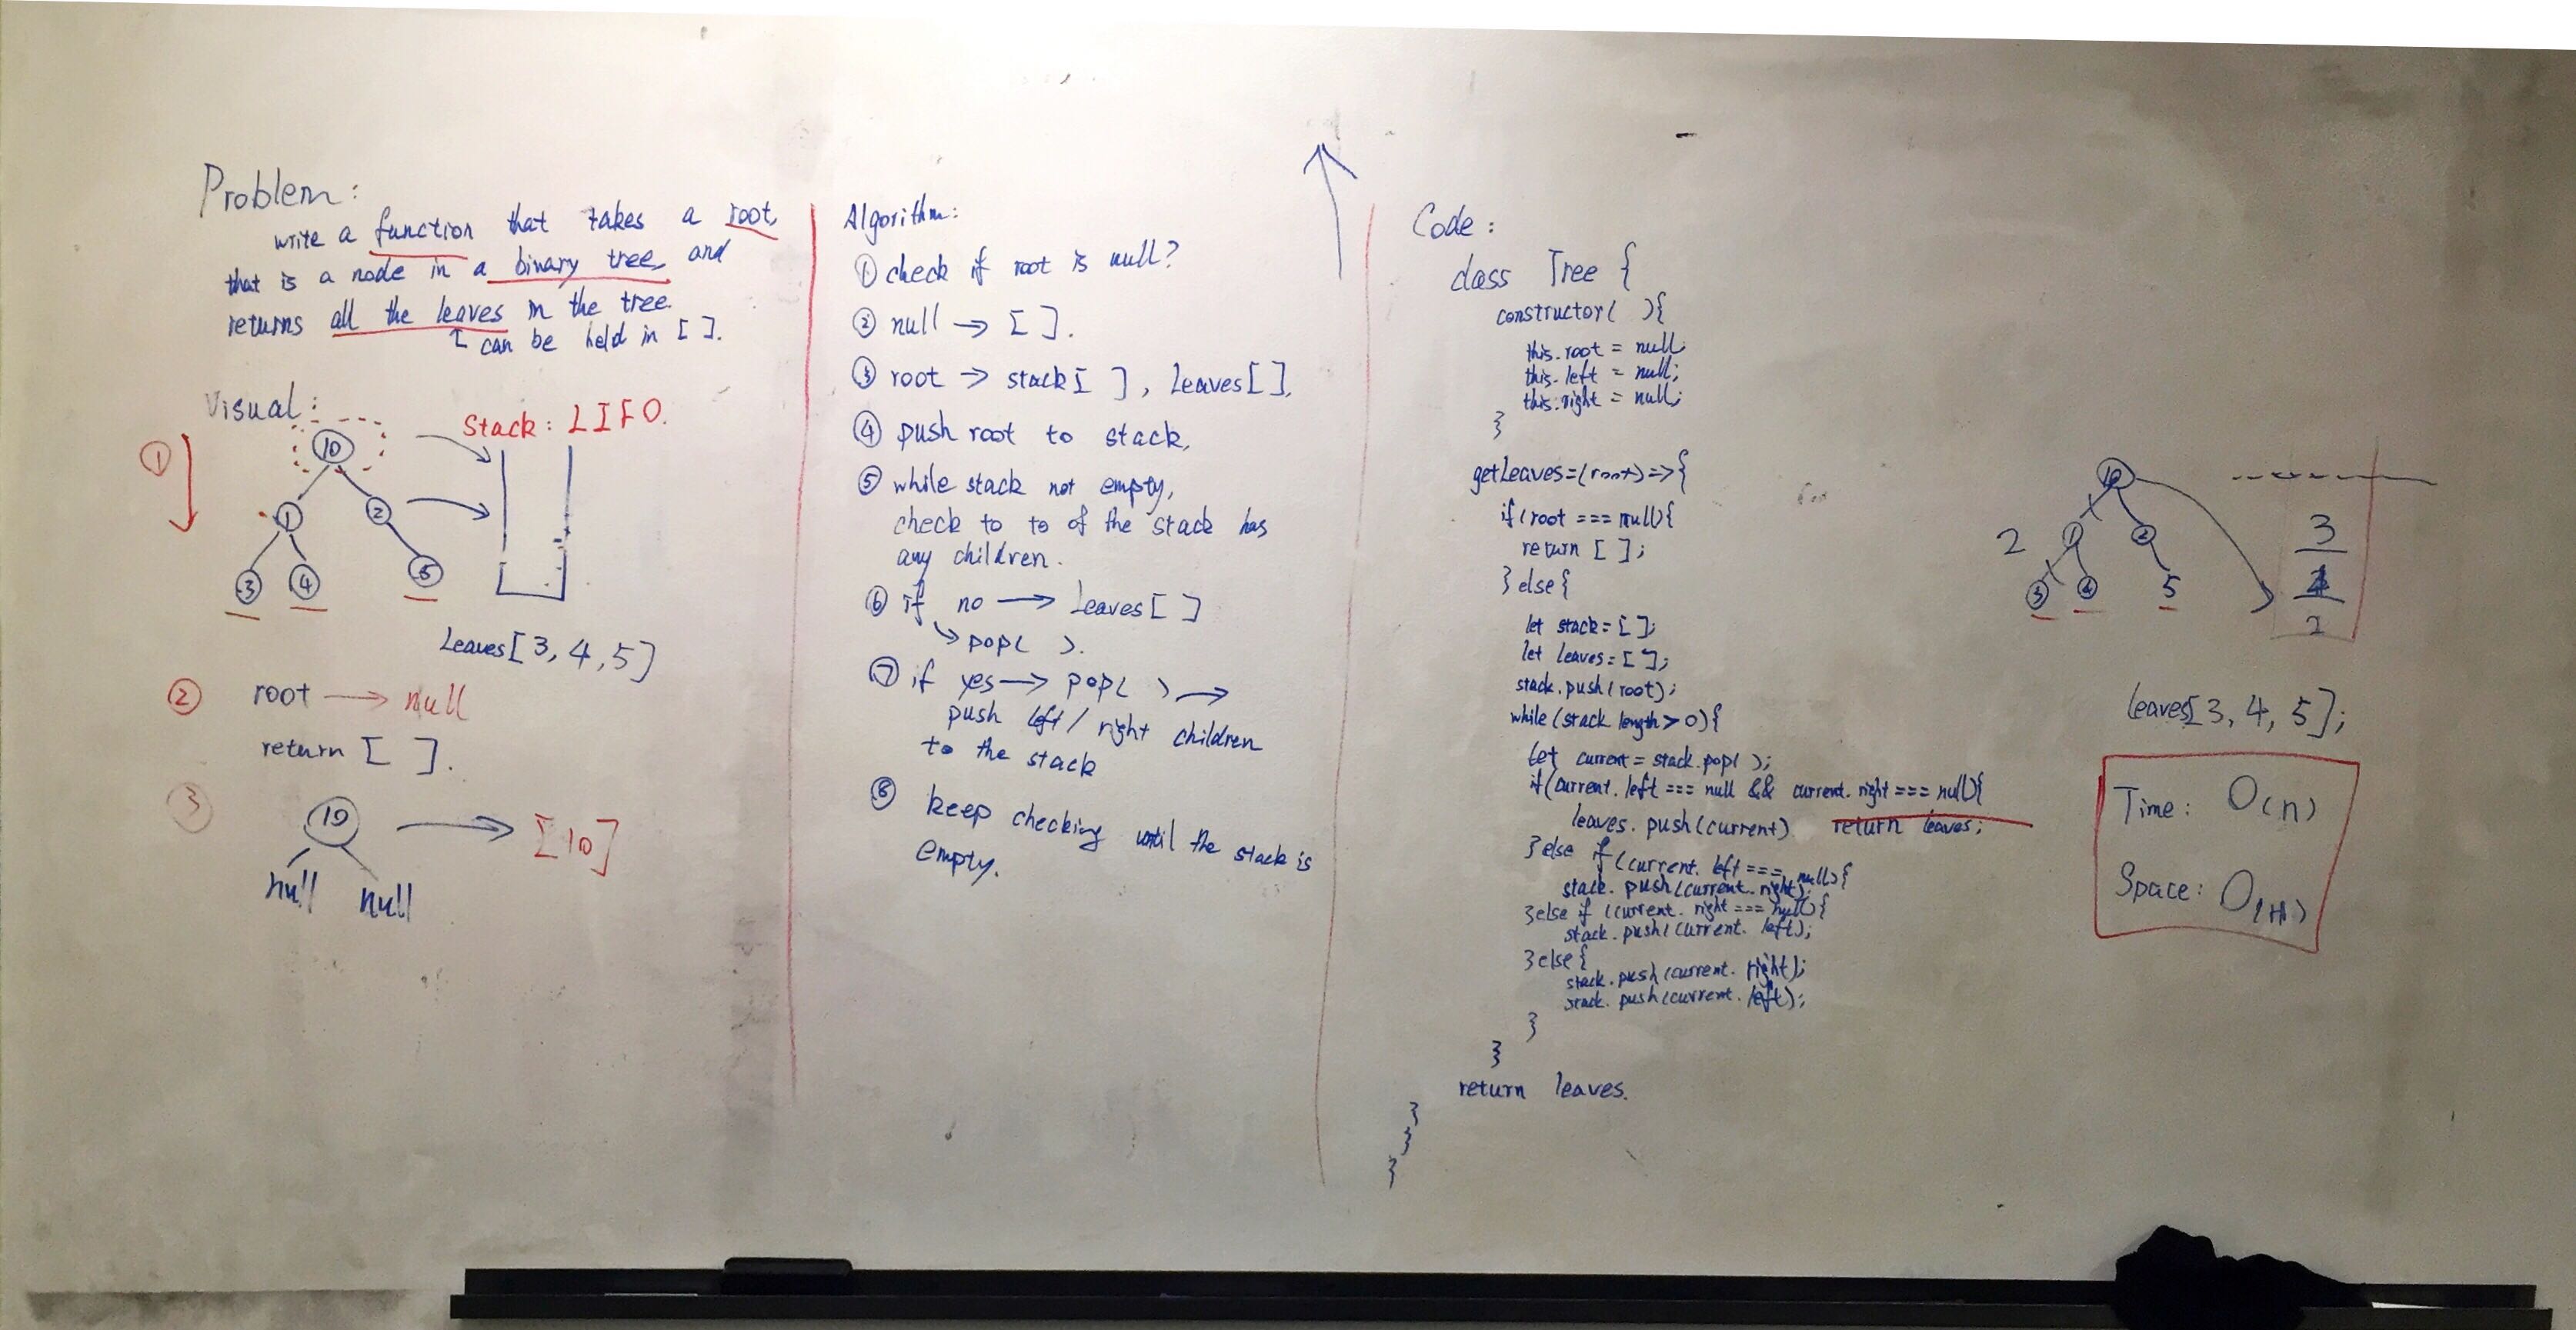 Problem:
write a function that takes a root,
that is a node in a binary tree, and
returns all the leaves in the tree.
can be held in [ ].
Visual:
Stack: LIFO.
①
10
1
2
3
4
5
Leaves[3, 4, 5]
② root → null
return [ ].
③
10 → [10]
null null
Algorithm:
① check if root is null?
② null → [ ].
③ root → stack[ ], Leaves[ ],
④ push root to stack,
⑤ while stack not empty,
check to to of the stack has
any children.
⑥ if no → Leaves[ ]
↳ pop( ).
⑦ if yes → pop( ) →
push left / right children
to the stack
⑧ keep checking until the stack is
empty.
Code:
class Tree {
constructor( ){
this.root = null;
this.left = null;
this.right = null;
}
getLeaves=(root)=>{
if(root === null){
return [ ];
} else{
let stack=[ ];
let leaves=[ ];
stack.push(root);
while(stack length>0){
Let current = stack.pop( );
if(current.left === null && current.right === null){
leaves.push(current) return leaves;
}else if(current.left === null){
stack.push(current.right);
}else if (current.right === null){
stack.push(current.left);
}else{
stack.push(current.right);
stack.push(current.left);
}
}
return leaves.
}
}
}
10
1
2
2
3
4
5
3
2
leaves[3, 4, 5];
Time: O(n)
Space: O(H)